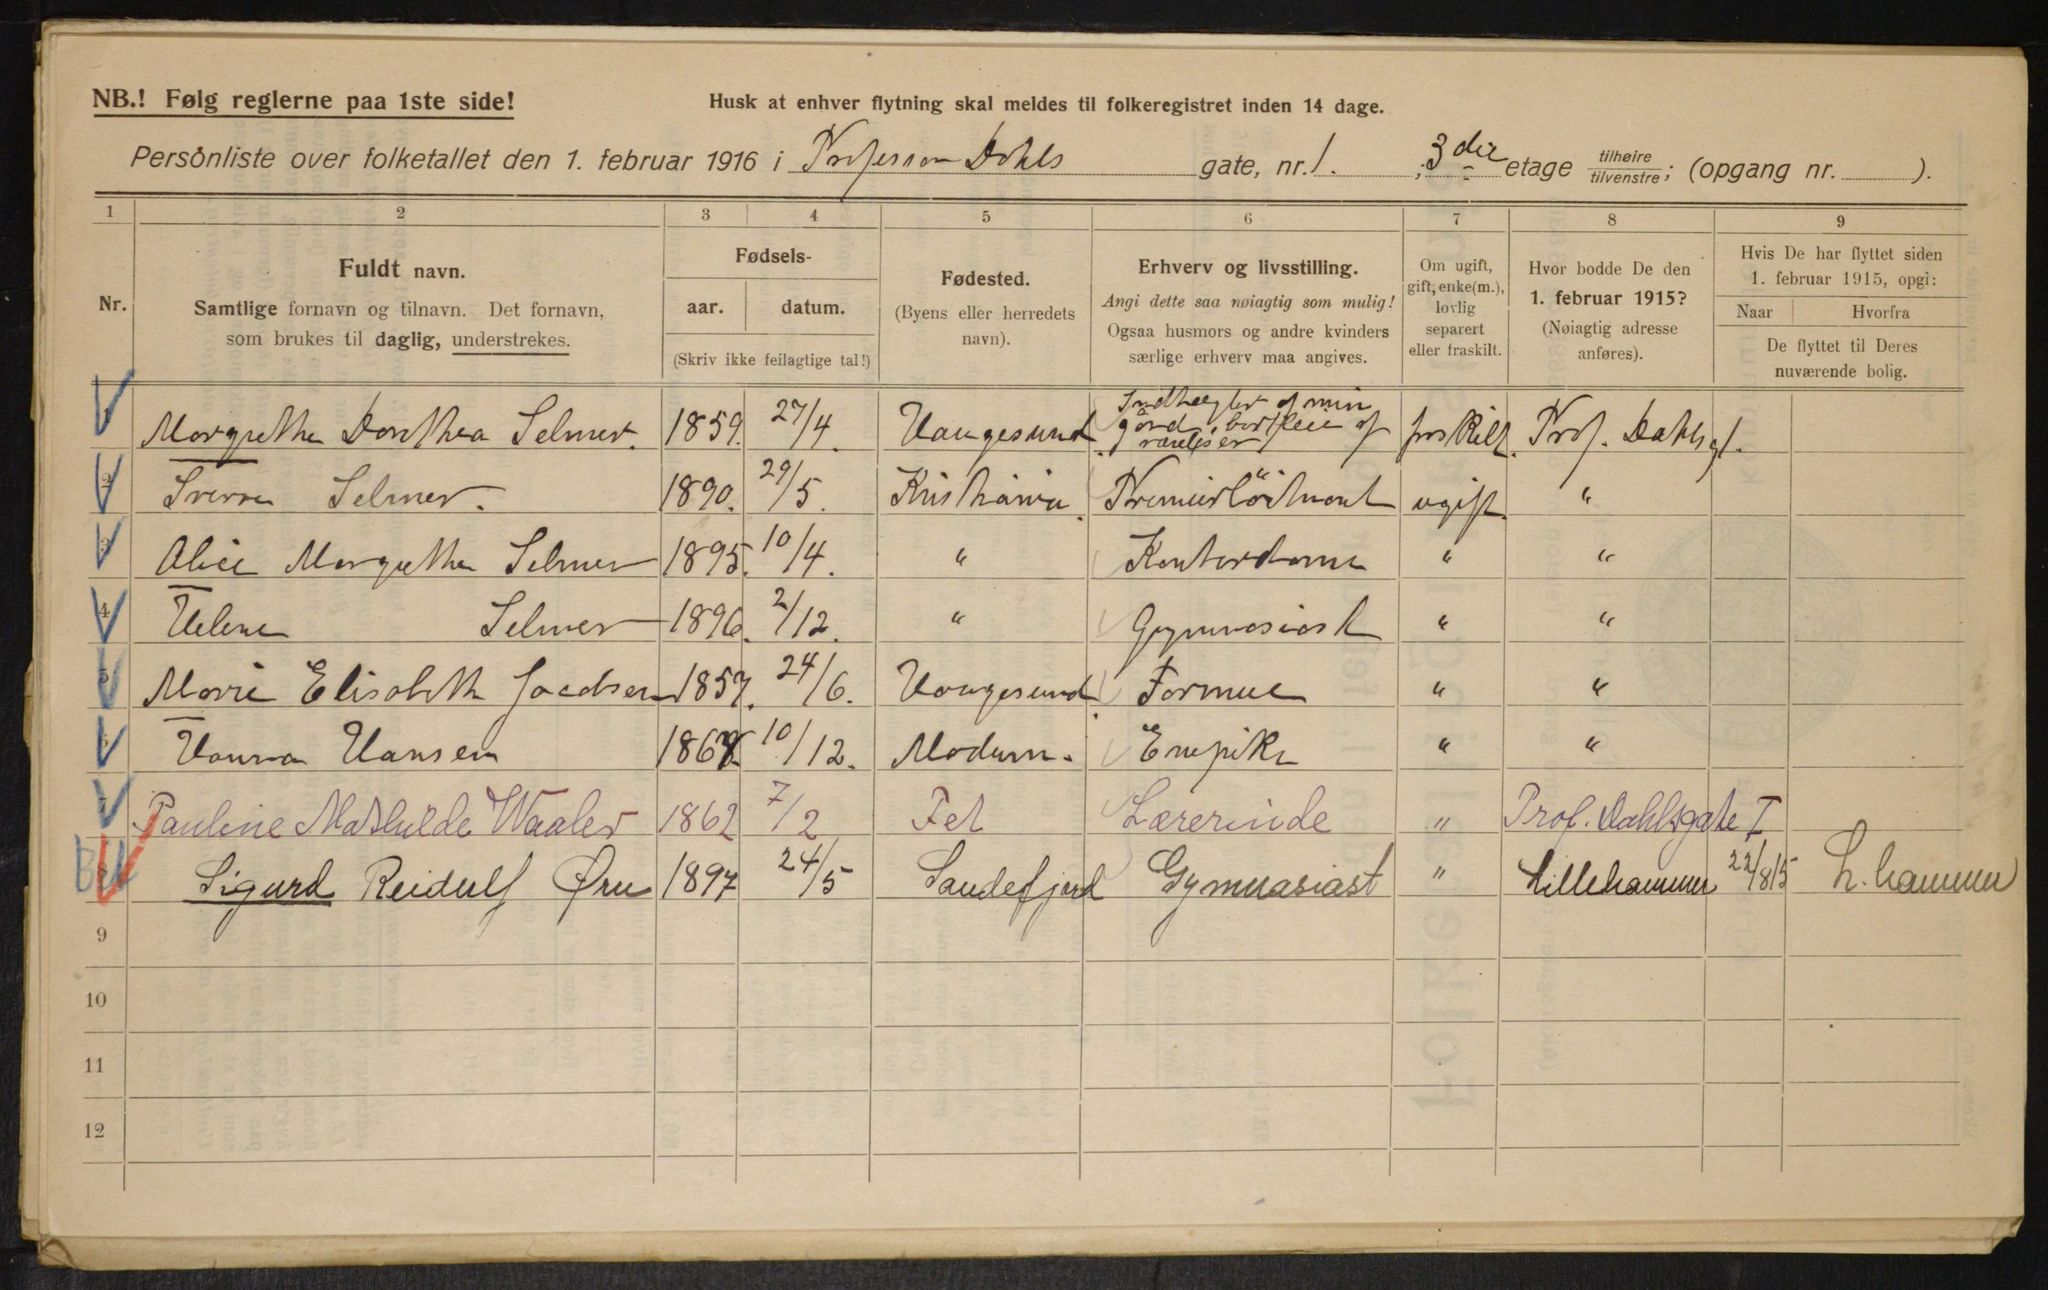 NB.! Følg reglerne paa 1ste side!
Husk at enhver flytning skal meldes til folkeregistret inden 14 dage.
Personliste over folketallet den 1. februar 1916 i Professor Dahls gate, nr. 1. ; 3die etage tilhøire/tilvenstre; (opgang nr. ).
1 2 3 4 5 6 7 8 9
Nr.
Fuldt navn.
Samtlige fornavn og tilnavn. Det fornavn,
som brukes til daglig, understrekes.
Fødsels-
aar. datum.
(Skriv ikke feilagtige tal!)
Fødested.
(Byens eller herredets
navn).
Erhverv og livsstilling.
Angi dette saa nøiagtig som mulig!
Ogsaa husmors og andre kvinders
særlige erhverv maa angives.
Om ugift,
gift, enke(m.),
lovlig
separert
eller fraskilt.
Hvor bodde De den
1. februar 1915?
(Nøiagtig adresse
anføres).
Hvis De har flyttet siden
1. februar 1915, opgi:
Naar Hvorfra
De flyttet til Deres
nuværende bolig.
1 Margrethe Dorothea Selmer. 1859. 27/4. Haugesund Indtægter af min gård, bortleie af værelser fraskilt. Prof. Dahlsgt.
2 Sverre Selmer. 1890. 29/5. Kristiania. Premierløitnant ugift. "
3 Alice Margrethe Selmer 1895. 10/4. " Kontordame " "
4 Helene Selmer 1896. 2/12. " Gymnasiast " "
5 Marie Elisabeth 1857. 24/6. Haugesund. Formue " "
6 Hanna Hansen 10/12. Modum. Enepike " "
7 Pauline Mathilde Waaler 1862 7/2 Fet Lærerinde " Prof. Dahlsgate I
8 Sigurd Reidulf Øru 1897 24/5 Sandefjord Gymnasiast " Lillehammer 22/8 15 L.hammer
9
10
11
12